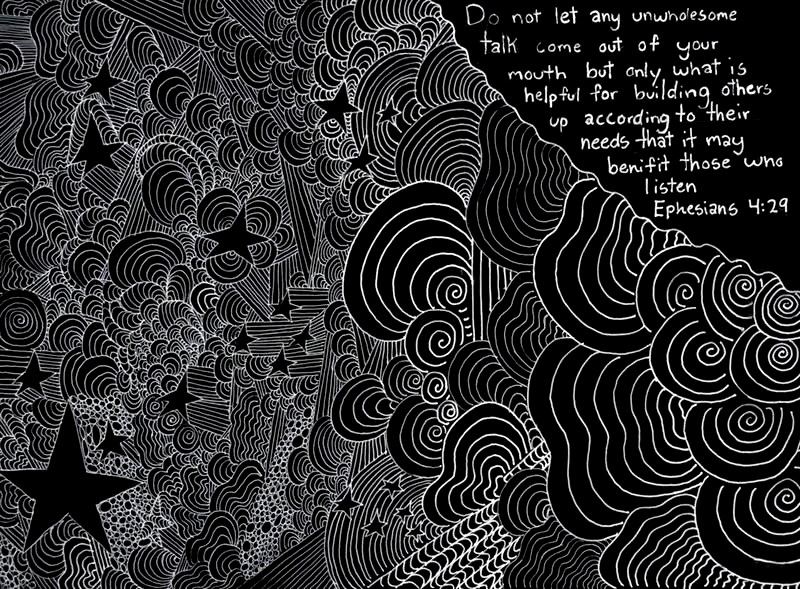 Do not let any unwholesome
talk come out of your
mouth but only what is
helpful for building others
up according to their
needs that it may
benifit those who
listen
Ephesians 4:29